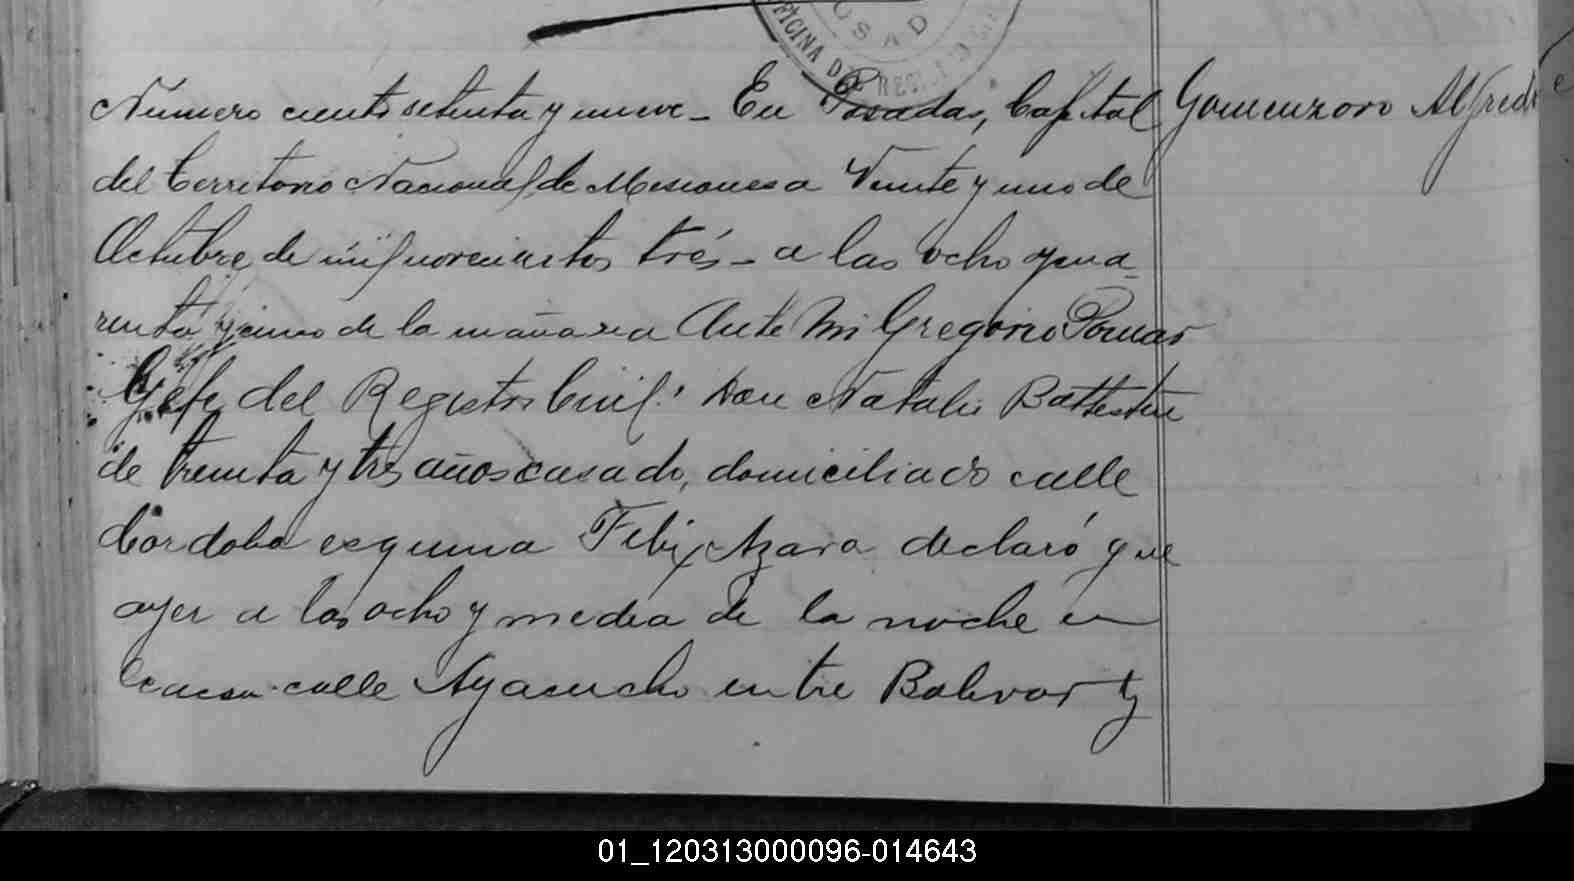 OFICINA DEL REGISTRO
Número ciento setenta y nueve - En Posadas, Capital
Gomenzoro Alfredo
del Territorio Nacional de Misiones a Veinte y uno de
Octubre de mil novecientos trés - a las ocho y cua
renta y cinco de la mañana Ante Mi Gregorio Pomar
Gefe del Registro Civil: Don Natalio Battestin
de treinta y tres años casado, domiciliado calle
Cordoba esquina Felix Azara declaró que
ayer a las ocho y media de la noche en
la casa calle Ayacucho entre Bolivar y
01_120313000096-014643